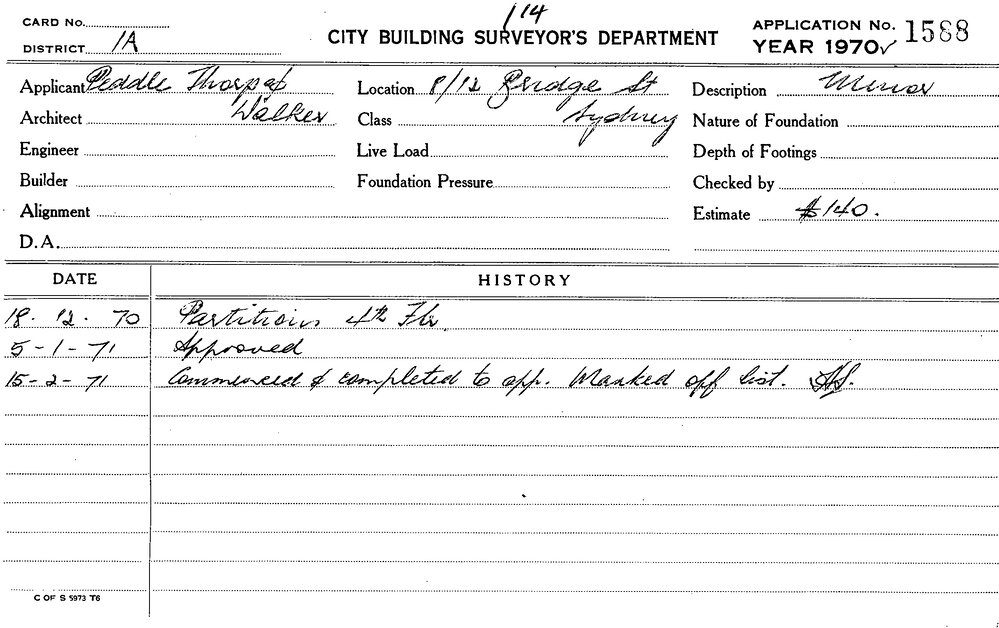 114
CARD No.
DISTRICT 1A
CITY BUILDING SURVEYOR'S DEPARTMENT
APPLICATION No. 1588
YEAR 1970 ✓
Applicant Peddle Thorp &
Location 8/12 Bridge St
Description Minor
Architect Walker
Class Sydney
Nature of Foundation
Engineer
Live Load
Depth of Footings
Builder
Foundation Pressure
Checked by
Alignment
Estimate $140.
D.A.
DATE HISTORY
18. 12. 70 Partitions 4th Flr
5-1-71 Approved
15-2-71 Commenced & completed to app. Marked off list.
C OF S 5973 T6